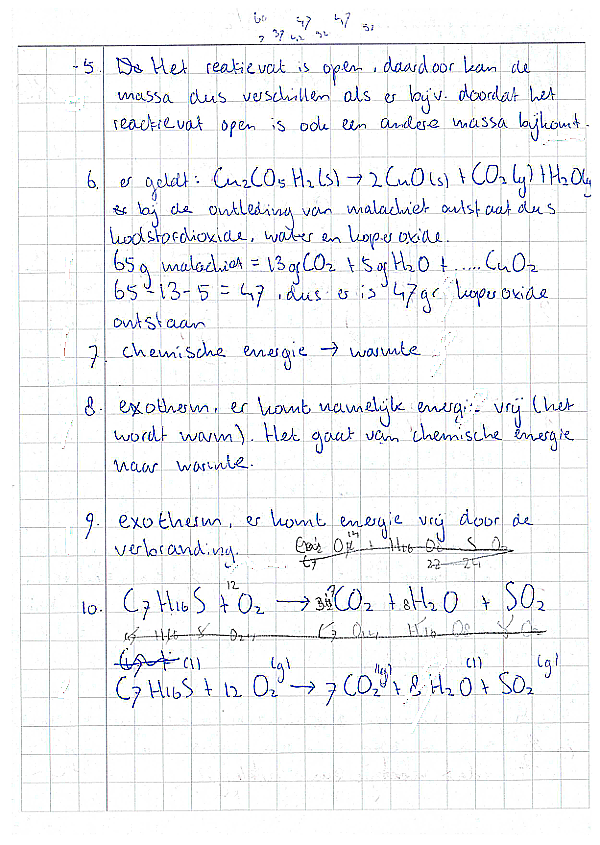 60 47 47
5. Het reactievat is open, daardoor kan de
massa dus verschillen als er bijv. doordat het
reactievat open is ook een andere massa bijkomt.
6. er geldt: Cu2CO5H2(s) → 2CuO(s) + CO2(g) + H2O(g)
bij de ontleding van malachiet ontstaat dus
koolstofdioxide, water en koperoxide.
65g malachiet = 13gCO2 + 5gH2O + ..... CuO2
65-13-5 = 47, dus er is 47gr koperoxide
ontstaan
7. chemische energie → warmte
8. exotherm, er komt namelijk energie vrij (het
wordt warm). Het gaat van chemische energie
naar warmte.
9. exotherm, er komt energie vrij door de
verbranding.
10. C7H16S + 12 O2 → 7CO2 + 8H2O + SO2
(l) (g) (g) (l) (g)
C7H16S + 12 O2 → 7 CO2 + 8 H2O + SO2